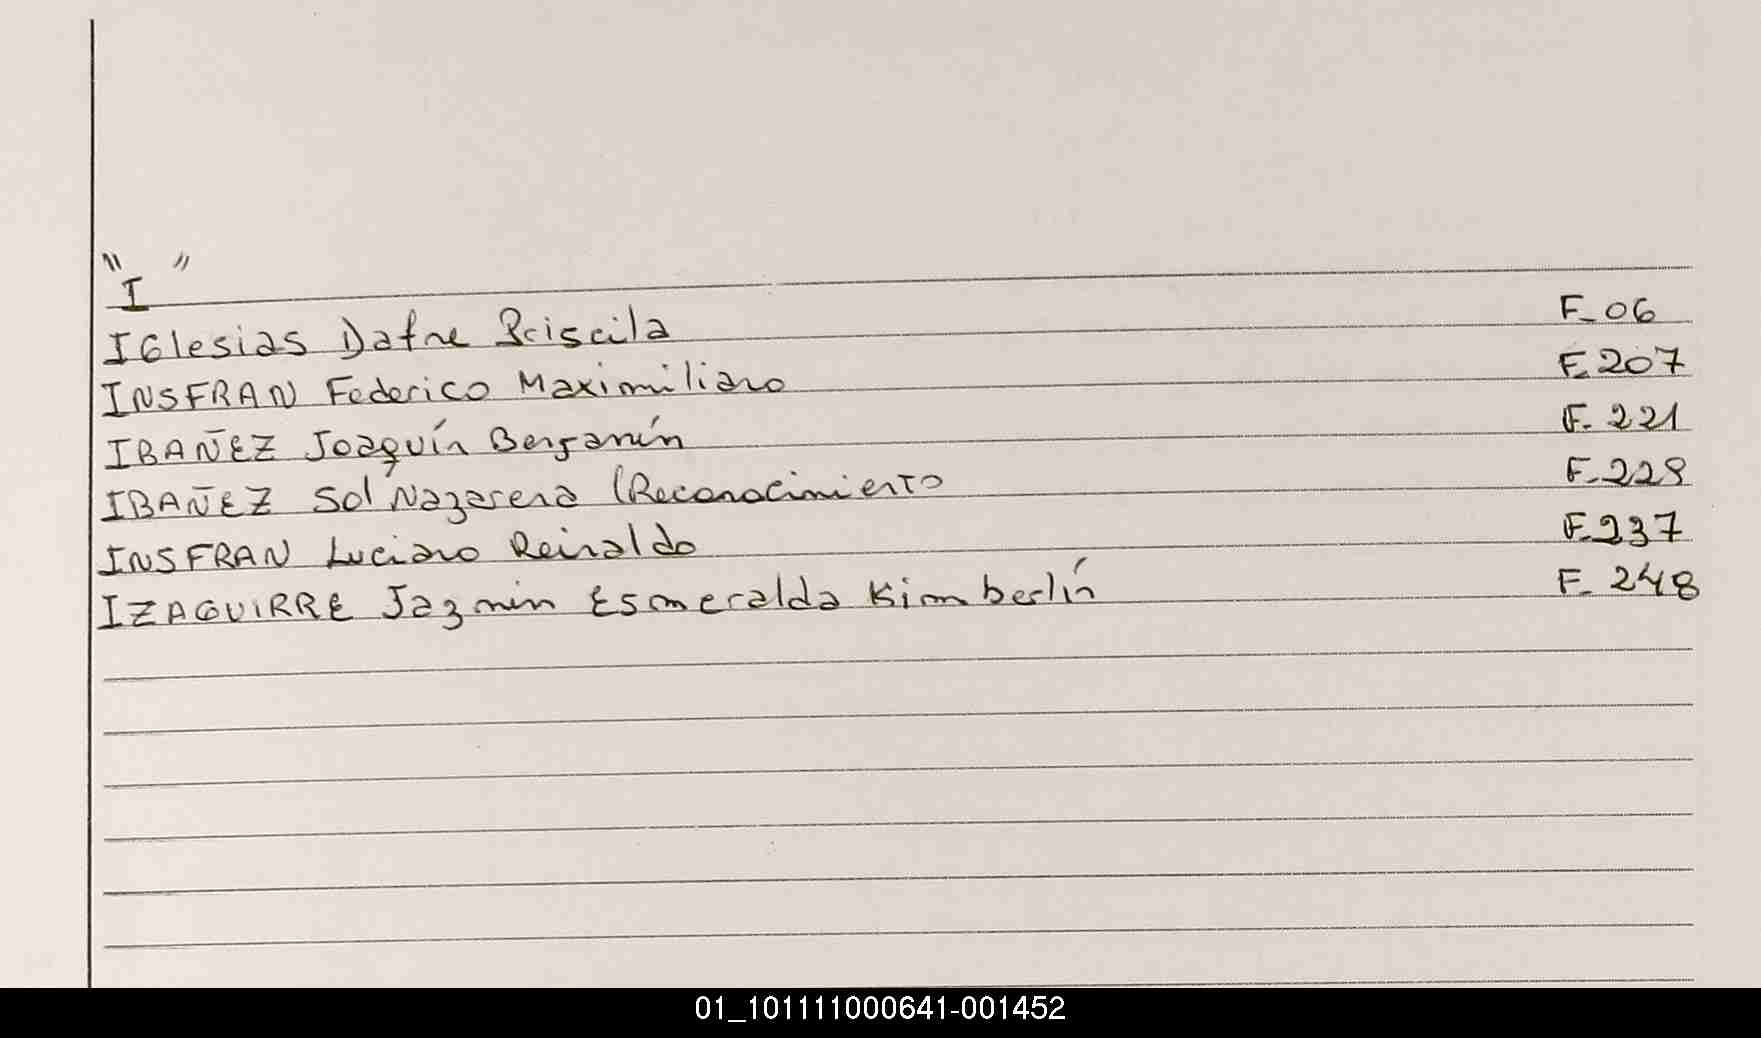 "I"
IGlesias Dafne Priscila F_06
INSFRAN Federico Maximiliano F_207
IBAÑEZ Joaquín Benjamín F_221
IBAÑEZ Sol Nazarena (Reconocimiento F_228
INSFRAN Luciano Reinaldo F_237
IZAGUIRRE Jazmin Esmeralda Kimberlín F_248
01_101111000641-001452